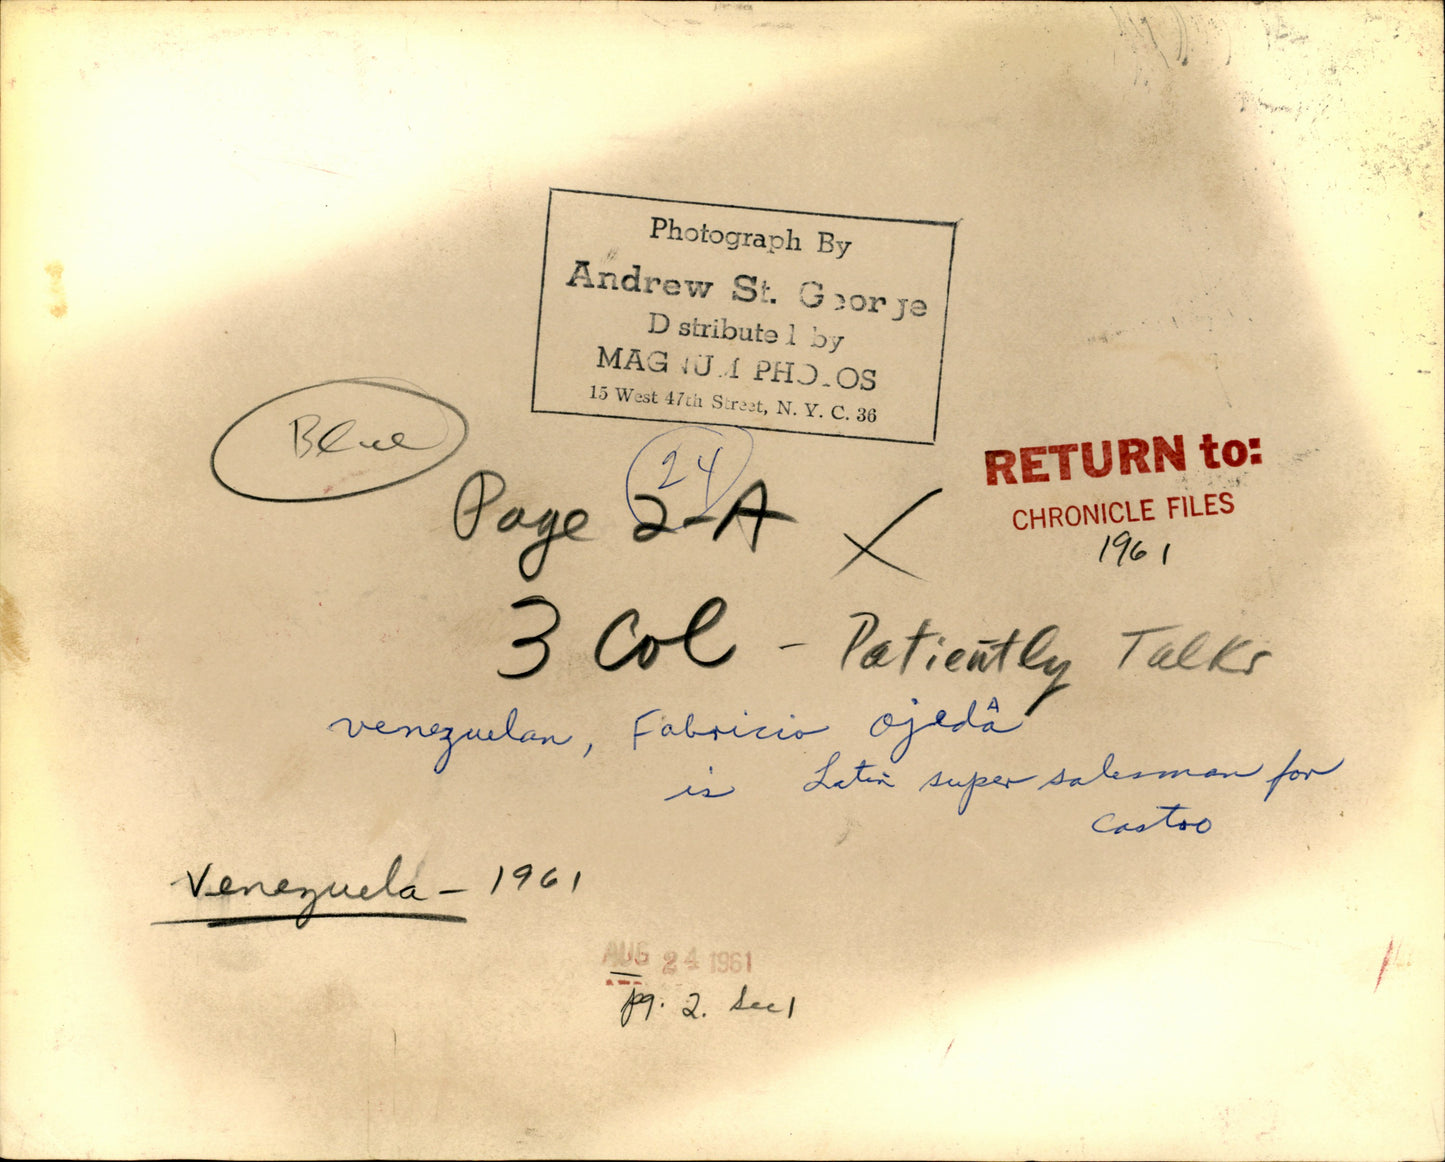 Photograph By
Andrew St. George
Distributed by
MAGNUM PHOTOS
15 West 47th Street, N. Y. C. 36
Blue
24
Page 2-A X
RETURN to:
CHRONICLE FILES
1961
3 Col - Patiently Talks
Venezuelan, Fabricio Ojeda
is Latin super salesman for
Castro
Venezuela - 1961
AUG 24 1961
pg. 2. Sec 1